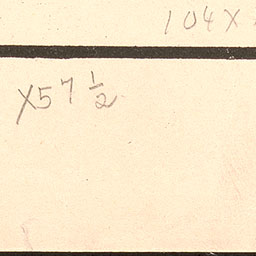 104X
X57 1/2